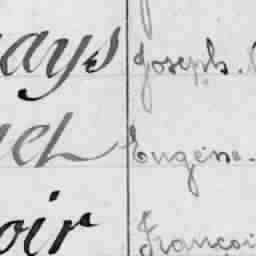 ays Joseph.
uel Eugène.
oir Françoi